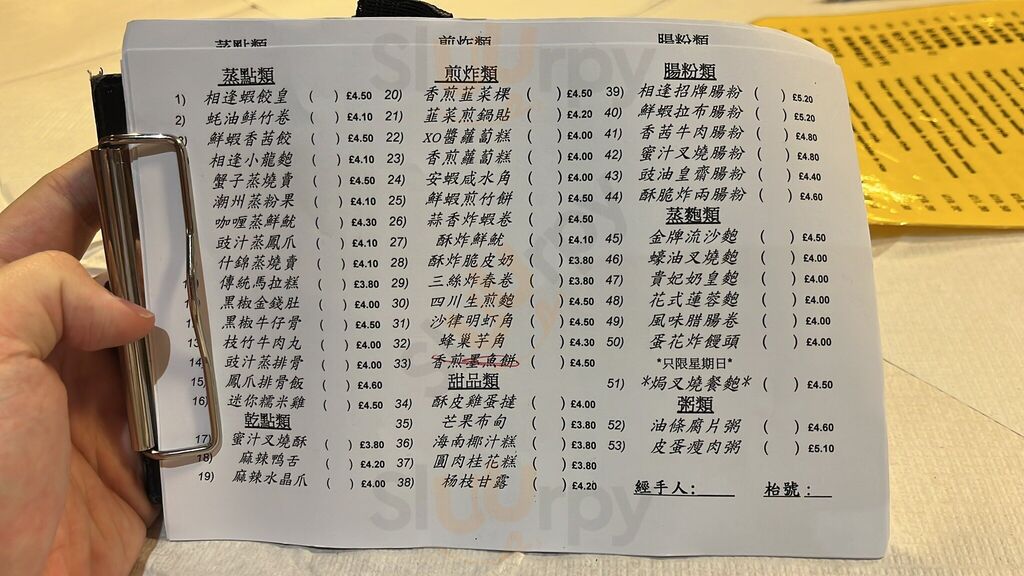 蒸點類
煎炸類
腸粉類
蒸點類
1) 相逢蝦餃皇 ( ) £4.50
2) 蚝油鮮竹卷 ( ) £4.10
鮮蝦香茜餃 ( ) £4.50
相逢小龍麭 ( ) £4.10
蟹子蒸燒賣 ( ) £4.50
潮州蒸粉果 ( ) £4.10
咖喱蒸鮮魷 ( ) £4.30
豉汁蒸鳳爪 ( ) £4.10
什錦蒸燒賣 ( ) £4.10
傳統馬拉糕 ( ) £3.80
黑椒金錢肚 ( ) £4.00
黑椒牛仔骨 ( ) £4.50
枝竹牛肉丸 ( ) £4.00
14) 豉汁蒸排骨 ( ) £4.00
15) 鳳爪排骨飯 ( ) £4.60
16) 迷你糯米雞 ( ) £4.50
乾點類
17) 蜜汁叉燒酥 ( ) £3.80
18) 麻辣鸭舌 ( ) £4.20
19) 麻辣水晶爪 ( ) £4.00
煎炸類
20) 香煎韮菜粿 ( ) £4.50
21) 韮菜煎鍋貼 ( ) £4.20
22) XO醬蘿蔔糕 ( ) £4.00
23) 香煎蘿蔔糕 ( ) £4.00
24) 安蝦咸水角 ( ) £4.00
25) 鮮蝦煎竹餅 ( ) £4.50
26) 蒜香炸蝦卷 ( ) £4.50
27) 酥炸鮮魷 ( ) £4.10
28) 酥炸脆皮奶 ( ) £3.80
29) 三絲炸春卷 ( ) £3.80
30) 四川生煎麭 ( ) £4.50
31) 沙律明虾角 ( ) £4.50
32) 蜂巢芋角 ( ) £4.30
33) 香煎墨魚餅 ( ) £4.50
甜品類
34) 酥皮雞蛋撻 ( ) £4.00
35) 芒果布甸 ( ) £3.80
36) 海南椰汁糕 ( ) £3.80
37) 圓肉桂花糕 ( ) £3.80
38) 杨枝甘露 ( ) £4.20
腸粉類
39) 相逢招牌腸粉 ( ) £5.20
40) 鮮蝦拉布腸粉 ( ) £5.20
41) 香茜牛肉腸粉 ( ) £4.80
42) 蜜汁叉燒腸粉 ( ) £4.80
43) 豉油皇齋腸粉 ( ) £4.40
44) 酥脆炸兩腸粉 ( ) £4.60
蒸麭類
45) 金牌流沙麭 ( ) £4.50
46) 蠔油叉燒麭 ( ) £4.00
47) 貴妃奶皇麭 ( ) £4.00
48) 花式蓮蓉麭 ( ) £4.00
49) 風味腊腸卷 ( ) £4.00
50) 蛋花炸饅頭 ( ) £4.00
*只限星期日*
51) *焗叉燒餐麭* ( ) £4.50
粥類
52) 油條腐片粥 ( ) £4.60
53) 皮蛋瘦肉粥 ( ) £5.10
經手人: 枱號:
Slurrpy
Slurrpy